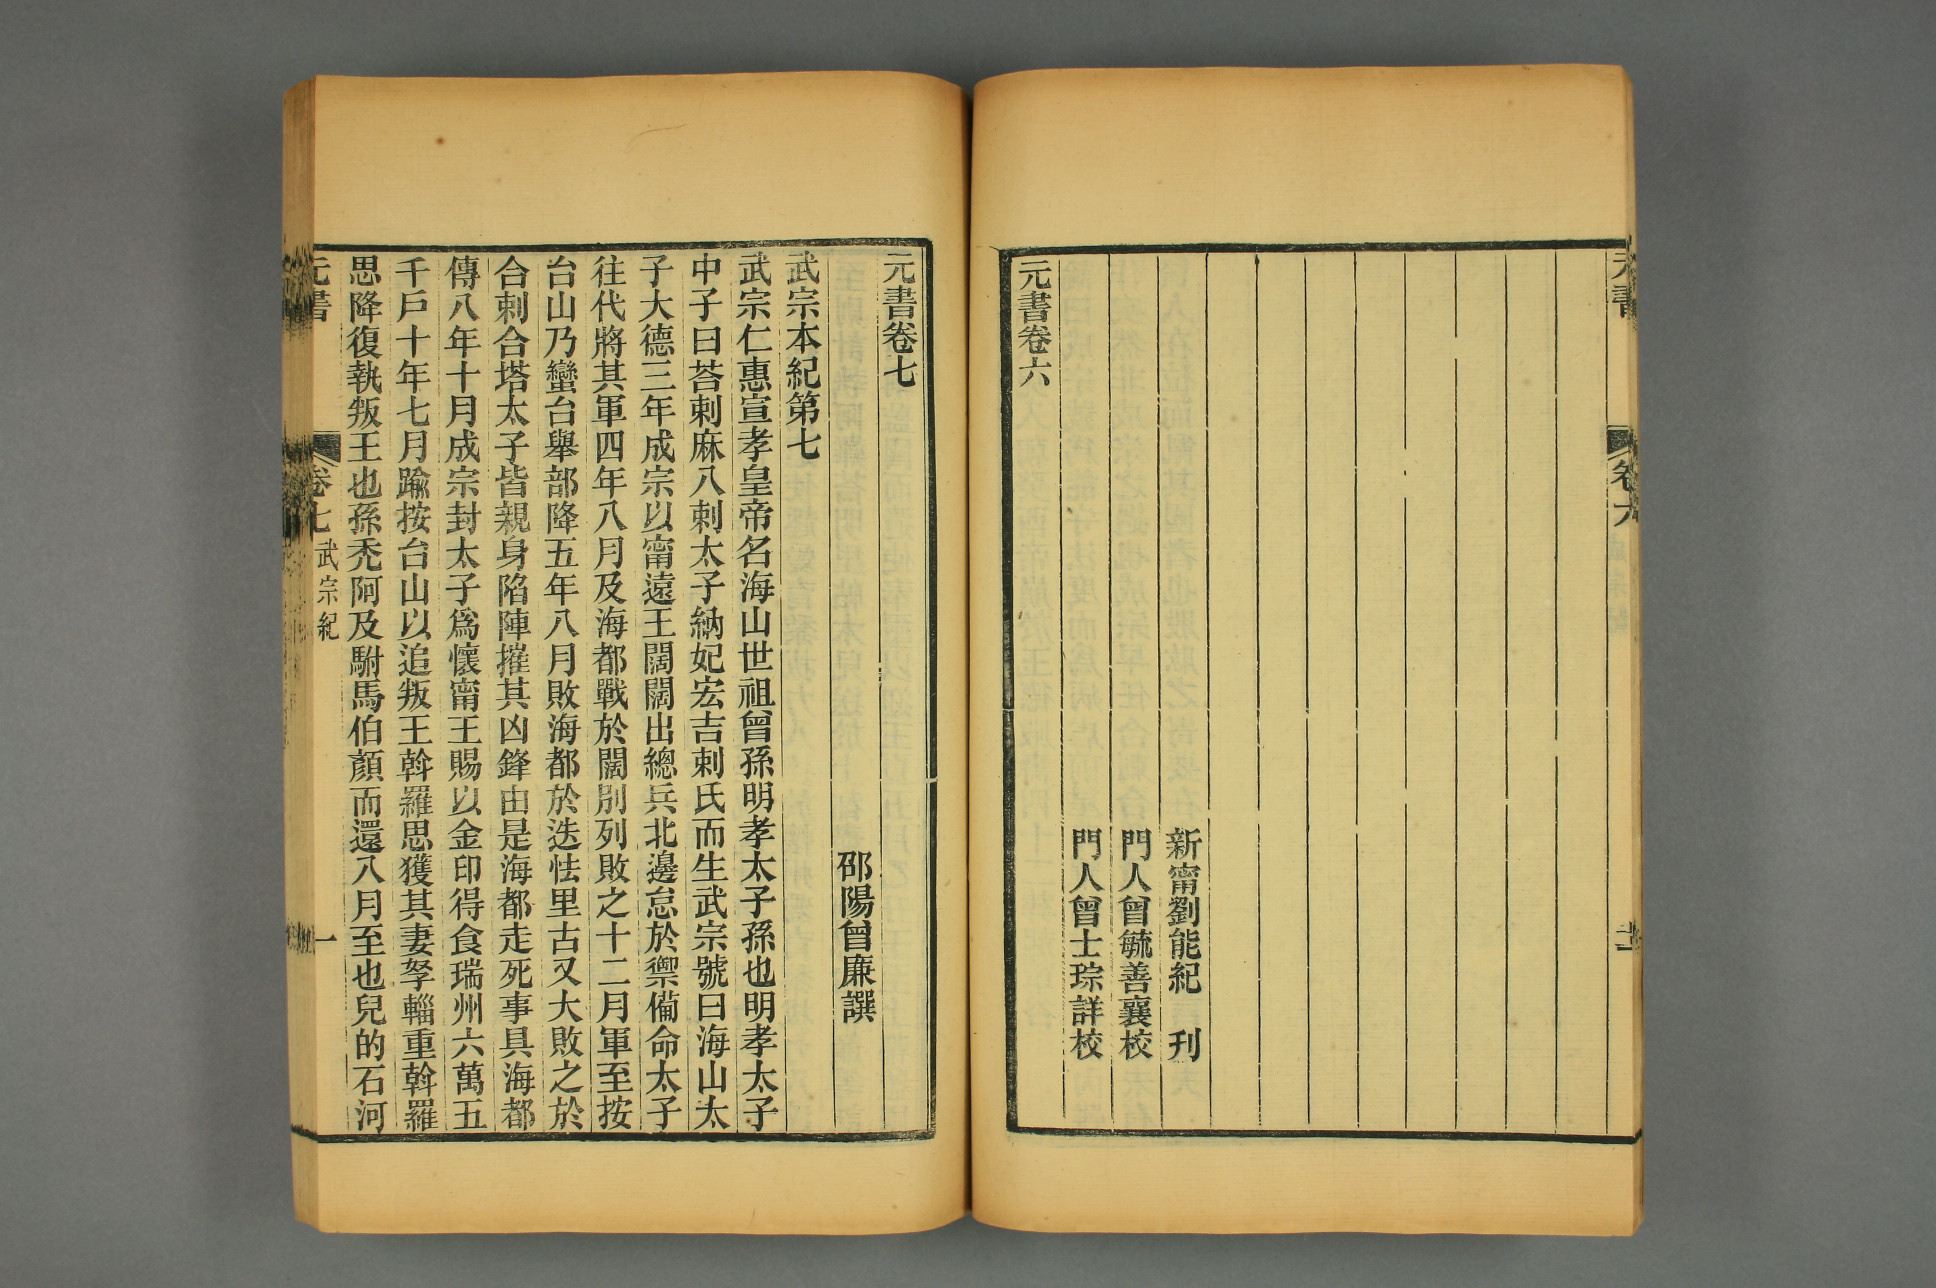 卷六
新甯劉能紀　刊
門人曾毓善襄校
門人曾士琮詳校
元書卷六
元書卷七
邵陽曾廉譔
武宗本紀第七
武宗仁惠宣孝皇帝名海山世祖曾孫明孝太子孫也明孝太子
中子曰荅剌麻八剌太子納妃宏吉剌氏而生武宗號曰海山太
子大德三年成宗以甯遠王闊闊出總兵北邊怠於禦備命太子
往代將其軍四年八月及海都戰於闊別列敗之十二月軍至按
台山乃蠻台舉部降五年八月敗海都於迭怯里古又大敗之於
合剌合塔太子皆親身陷陣摧其凶鋒由是海都走死事具海都
傳八年十月成宗封太子爲懷甯王賜以金印得食瑞州六萬五
千戶十年七月踰按台山以追叛王斡羅思獲其妻孥輜重斡羅
思降復執叛王也孫禿阿及駙馬伯顏而還八月至也兒的石河
元書
卷七
武宗紀
一